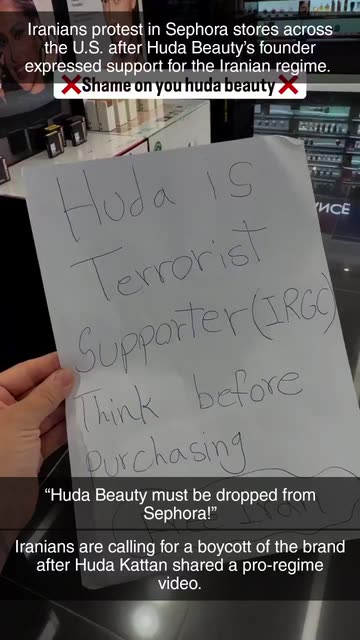 Iranians protest in Sephora stores across
the U.S. after Huda Beauty's founder
expressed support for the Iranian regime.
❌Shame on you huda beauty❌
Huda is
Terrorist
Supporter (IRGC)
Think before
purchasing
Free Iran
"Huda Beauty must be dropped from
Sephora!"
Iranians are calling for a boycott of the brand
after Huda Kattan shared a pro-regime
video.